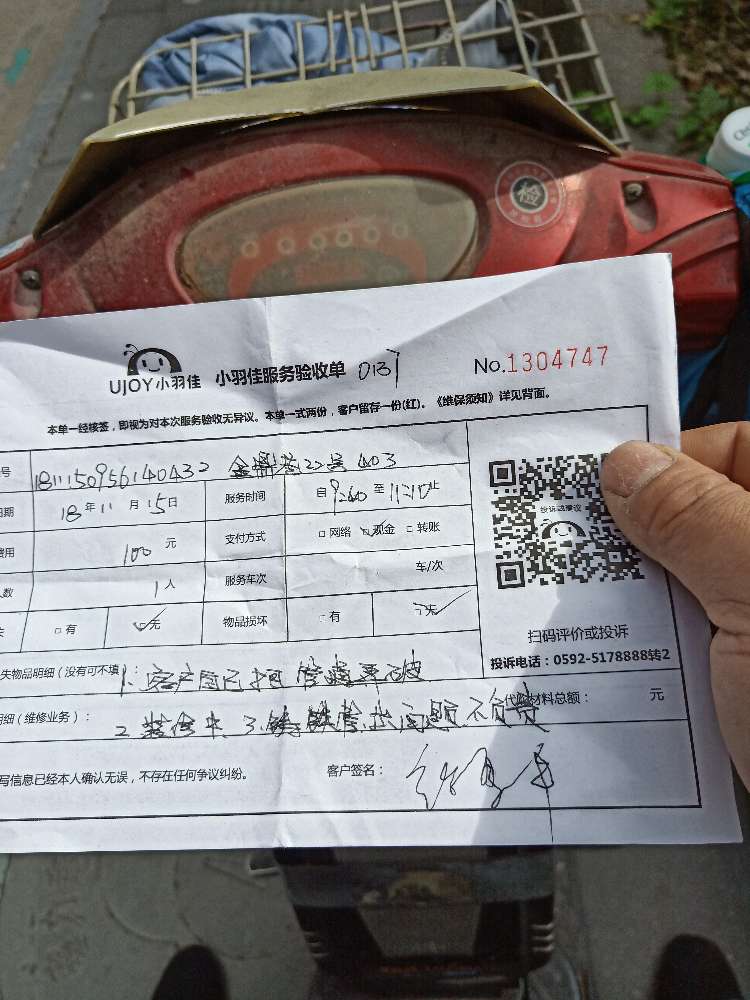 检
UJOY小羽佳 小羽佳服务验收单 013 No.1304747
本单一经核签，即视为对本次服务验收无异议。本单一式两份，客户留存一份(红)。《维保须知》详见背面。
号 18111509561404 32 金 22号403
期 18年11月15日 服务时间 自 至 止
费用 100元 支付方式 □网络 ☑现金 □转账
人数 1人 服务车次 车/次
失 □有 ☑无 物品损坏 □有 ☑无
投诉或建议
扫码评价或投诉
投诉电话：0592-5178888转2
失物品明细（没有可不填）：1、客户自己 管
明细（维修业务）：2、装修中、3、铸铁管、出问题不负责 代购材料总额： 元
写信息已经本人确认无误，不存在任何争议纠纷。 客户签名：